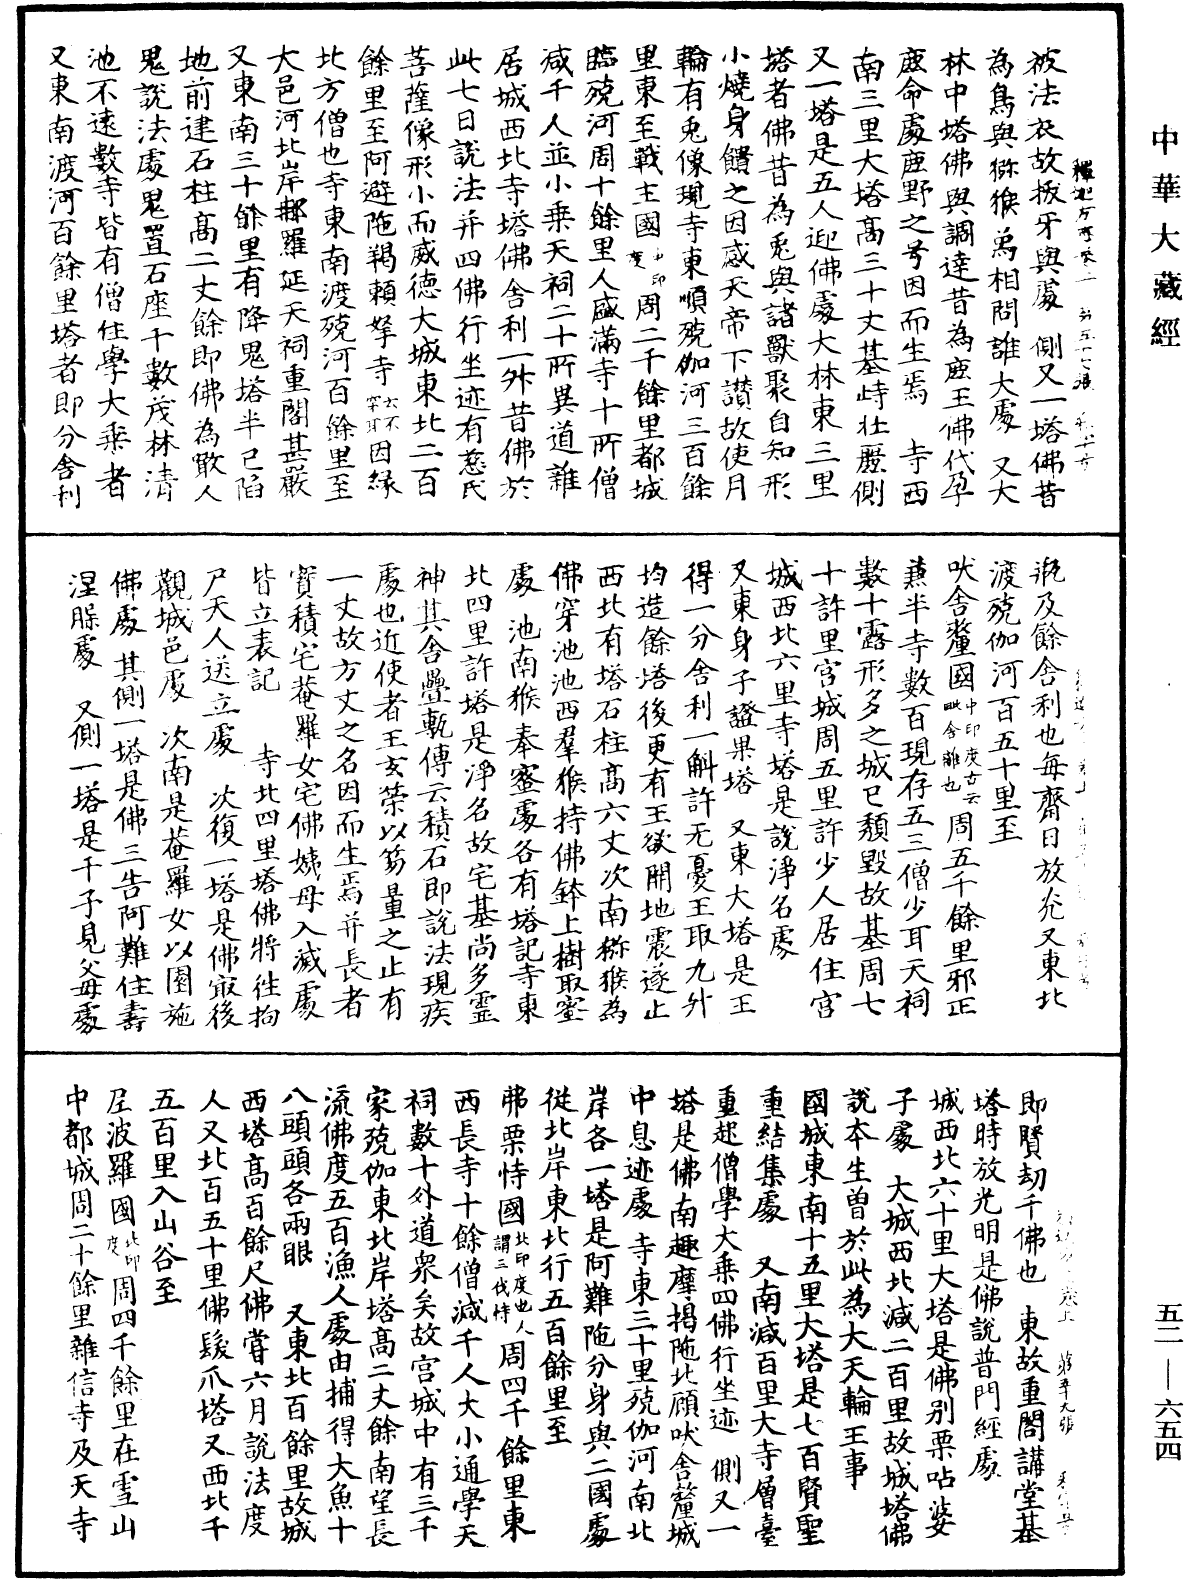 中華大藏經
五二—六五四
被法衣故拔牙與處　側又一塔佛昔
為鳥與獼猴為相問誰大處　又大
林中塔佛與調達昔為鹿王佛代孕
鹿命處鹿野之号因而生焉　寺西
南三里大塔高三十丈基峙壮麗側
又一塔是五人迎佛處大林東三里
塔者佛昔為兎與諸獸聚自知形
小燒身饋之因感天帝下讃故使月
輪有兎像現寺東順殑伽河三百餘
里東至戰主國中印度周二千餘里都城
臨殑河周十餘里人盛滿寺十所僧
減千人並小乗天祠二十所異道雜
居城西北寺塔佛舍利一升昔佛於
此七日説法并四佛行坐迹有慈氏
菩薩像形小而威德大城東北二百
餘里至阿避陁羯頼拏寺古不穿耳因縁
北方僧也寺東南渡殑河百餘里至
大邑河北岸那羅延天祠重閣甚嚴
又東南三十餘里有降鬼塔半已陷
地前建石柱高二丈餘即佛為噉人
鬼説法處鬼置石座千數茂林清
池不遠數寺皆有僧住學大乗者
又東南渡河百餘里塔者即分舍利
瓶及餘舍利也毎齋日放光又東北
渡殑伽河百五十里至
吠舍釐國中印度古云毗舍離也周五千餘里邪正
蕪半寺數百現存五三僧少耳天祠
數十露形多之城已頽毀故基周七
十許里宮城周五里許少人居住宮
城西北六里寺塔是説淨名處
又東身子證果塔　又東大塔是王
得一分舍利一斛許无憂王取九升
均造餘塔後更有王欲開地震遂止
西北有塔石柱高六丈次南獼猴為
佛穿池池西羣猴持佛鉢上樹取蜜
處　池南猴奉蜜處各有塔記寺東
北四里許塔是淨名故宅基尚多靈
神其舍疊甎傳云積石即説法現疾
處也近使者王玄䇿以笏量之止有
一丈故方丈之名因而生焉并長者
寳積宅菴羅女宅佛姨母入滅處
皆立表記　寺北四里塔佛將往拘
尸天人送立處　次復一塔是佛㝡後
觀城邑處　次南是菴羅女以園施
佛處　其側一塔是佛三告阿難住壽
涅槃處　又側一塔是千子見父母處
即賢劫千佛也　東故重閣講堂基
塔時放光明是佛説普門經處
城西北六十里大塔是佛别栗呫婆
子處　大城西北減二百里故城塔佛
説本生曽於此為大天輪王事
國城東南十五里大塔是七百賢聖
重結集處　又南減百里大寺層臺
重起僧學大乗四佛行坐迹　側又一
塔是佛南趣摩揭陁北顧吠舍釐城
中息迹處　寺東三十里殑伽河南北
岸各一塔是阿難陁分身與二國處
從北岸東北行五百餘里至
弗栗恃國北印度也人謂三伐恃周四千餘里東
西長寺十餘僧減千人大小通學天
祠數十外道衆矣故宮城中有三千
家殑伽東北岸塔高二丈餘南望長
流佛度五百漁人處由捕得大魚十
八頭頭各兩眼　又東北百餘里故城
西塔高百餘尺佛嘗六月説法度
人又北百五十里佛髮爪塔又西北千
五百里入山谷至
尼波羅國北印度周四千餘里在雪山
中都城周二十餘里雜信寺及天寺